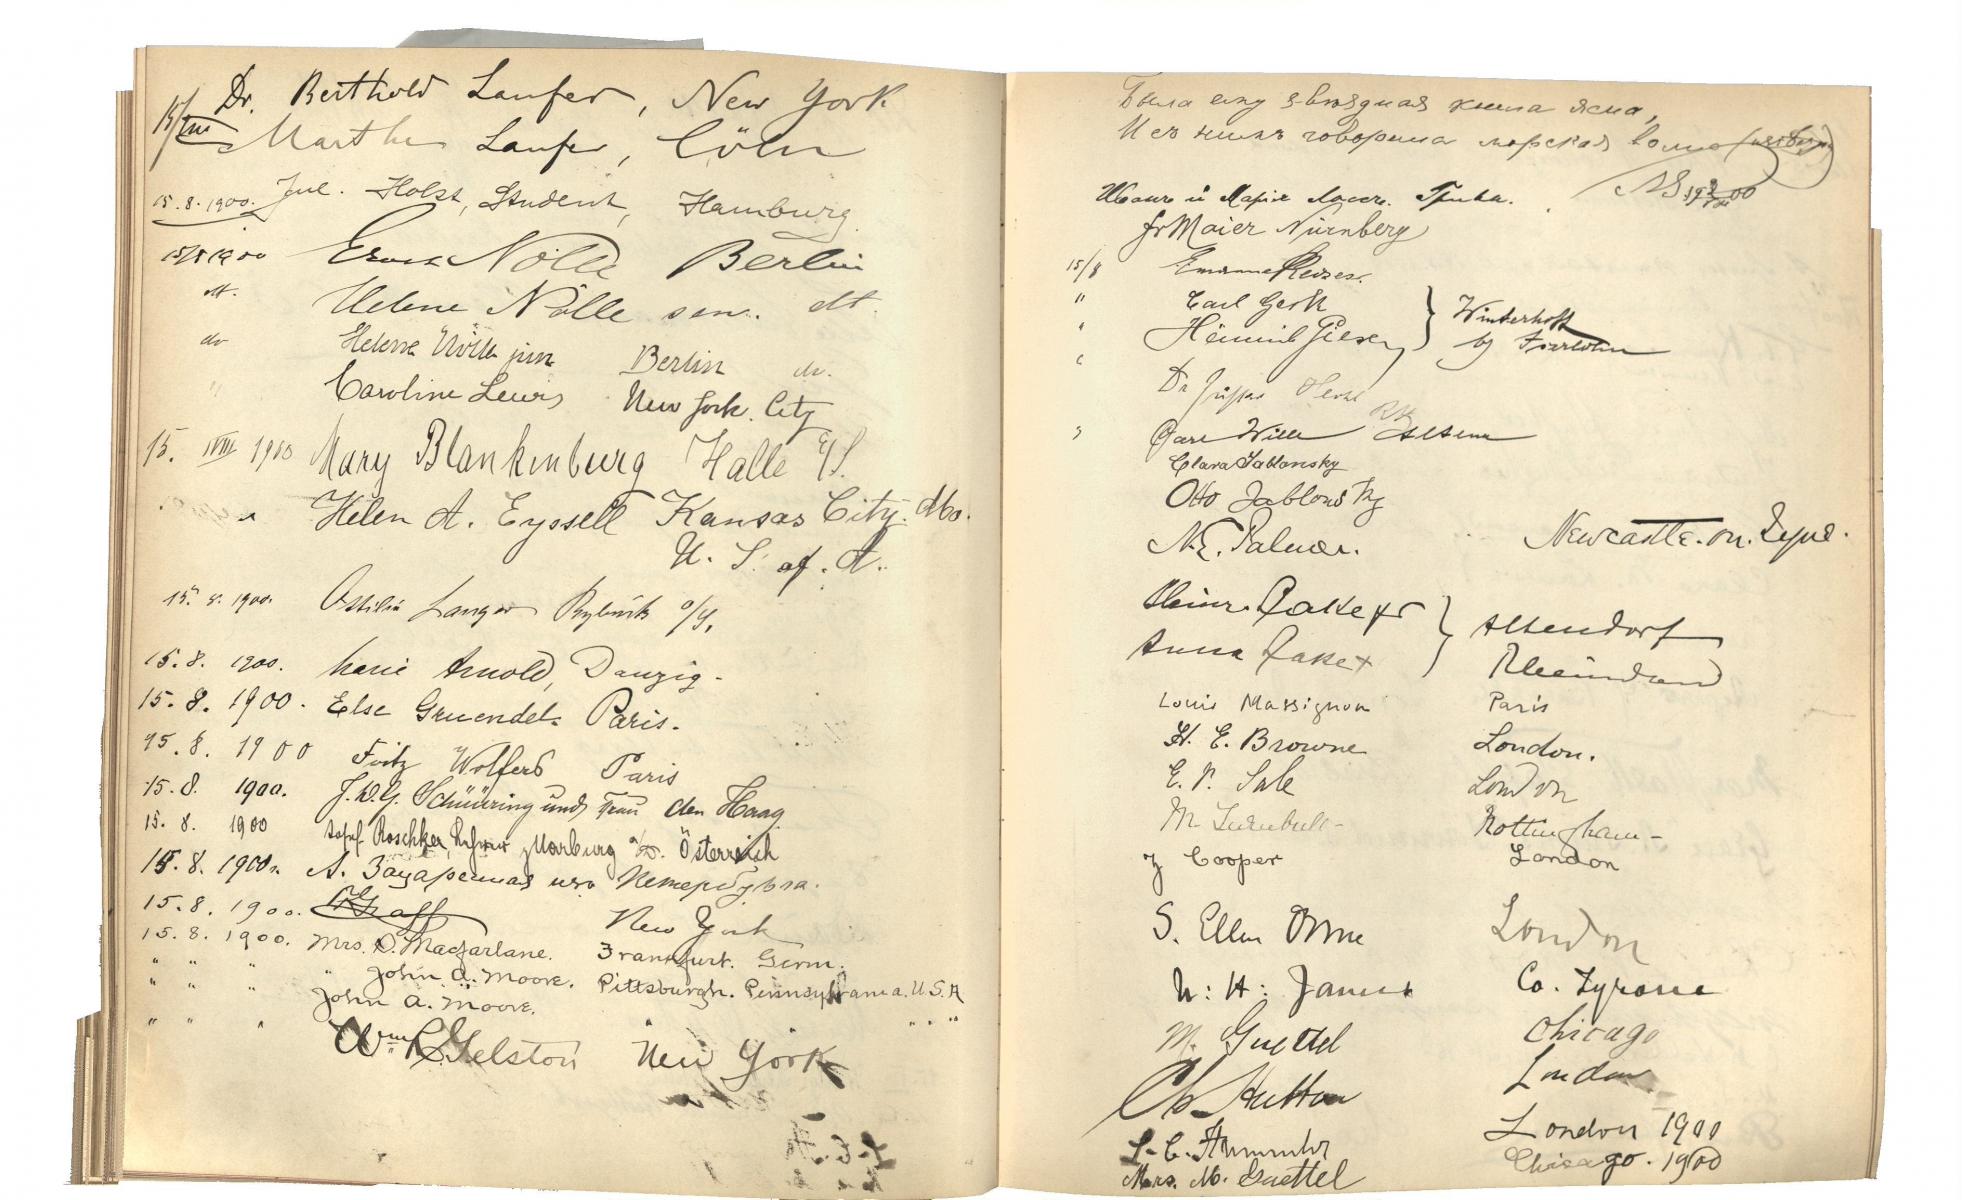 15/VIII Dr. Berthold Laufer, New York
Marthe Laufer, Cöln
15.8.1900. Jul. Holst, Student, Hamburg.
15/8 1900 Ernst Nölle Berlin
dt. Helene Nölle sen. dt.
do Helene Nölle jun Berlin do.
" Caroline Lewis New York. City
15. VIII 1900 Mary Blankenburg Halle a/S.
" Helen A. Eyssell Kansas City. Mo.
U. S. of. A.
15. 8. 1900. Ottilie Langer Rybnik o/S.
15.8. 1900. Marie Arnold, Danzig.
15.8. 1900. Else Gruendel. Paris.
15.8. 1900 Fritz Wolfers Paris
15.8. 1900. J.W.G. Schüüring und Frau den Haag
15.8. 1900 Josef Roschker, Marburg a/D. Österreich
15.8.1900. А. из Петербурга.
15.8.1900. Graff New York
15.8.1900. Mrs. D. Macfarlane. Frankfurt. Germ.
" " " " John A. Moore. Pittsburgh. Pennsylvania. U.S.A
" " " John A. Moore.
" " " " " "
Wm R. Gelston New York
Была ему звездная книга ясна,
И с ним говорила морская волна
1900
Иванъ и Марія Грива.
Fr Maier Nürnberg
15/8 Emanuel
" Carl Gerh } Winterhoff
" Heinrich Giesen by Iserlohn
" Dr
" Carl Wille Altena
Clara Jablonsky
Otto Jablonsky
N.E. Palmer. Newcastle. on. Tyne.
Heinr. } Altendorf
Anna Rheinland
Louis Massignon Paris
H. E. Browne London.
E. P. Sale London
M Turnbull - Nottingham -
J Cooper London
S. Ellen Orme London
W: H: James Co. Tyrone
M. Guettel Chicago
Ch Hutton London
S. C. London 1900
Mrs. M. Guettel Chicago. 1900